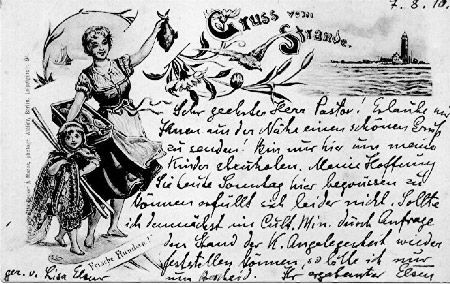 7. 8. 10.
Gruss vom
Strande.
Sehr geehrter Herr Pastor! Erlaube mir
Ihnen aus der Nähe einen schönen Gruß
zu senden! Bin nur hier um meine
Kinder abzuholen. Meine Hoffnung
Sie heute Sonntag hier begrüssen zu
können erfüllt sich leider nicht. Sollte
ich demnächst im Cult. Min. durch Anfrage
den Stand der K. Angelegenheit wieder
feststellen können, so bitte ich nur
um Bescheid. Ihr ergebenster Elsner
Frische Flundern!
gez. v. Lisa Elsner